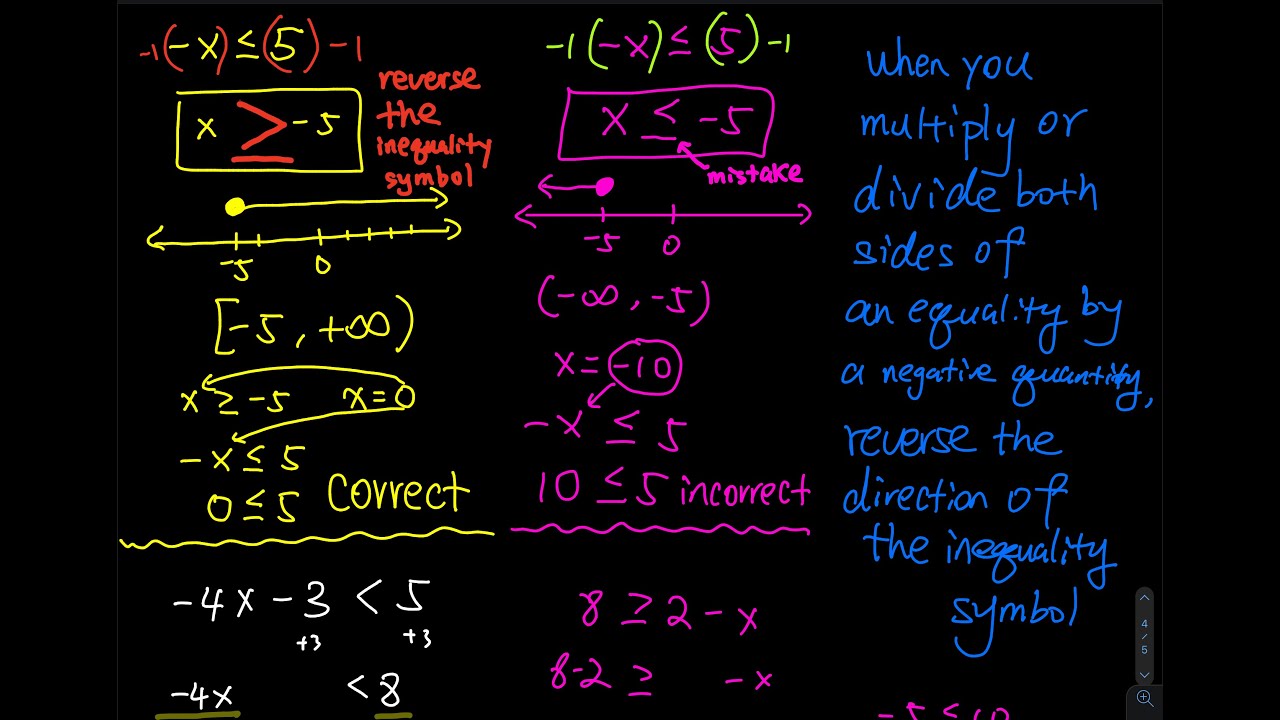 -1(-x) ≤ (5)-1
x ≥ -5
reverse
the
inequality
symbol
-5 0
[-5, +∞)
x ≥ -5 x=0
-x ≤ 5
0 ≤ 5 Correct
-4x - 3 < 5
+3 +3
-4x < 8
-1(-x) ≤ (5)-1
x ≤ -5
mistake
-5 0
(-∞, -5)
x = -10
-x ≤ 5
10 ≤ 5 incorrect
8 ≥ 2 - x
8-2 ≥ -x
when you
multiply or
divide both
sides of
an equality by
a negative quantity,
reverse the
direction of
the inequality
symbol
-5 ≤ 10
4
/
5